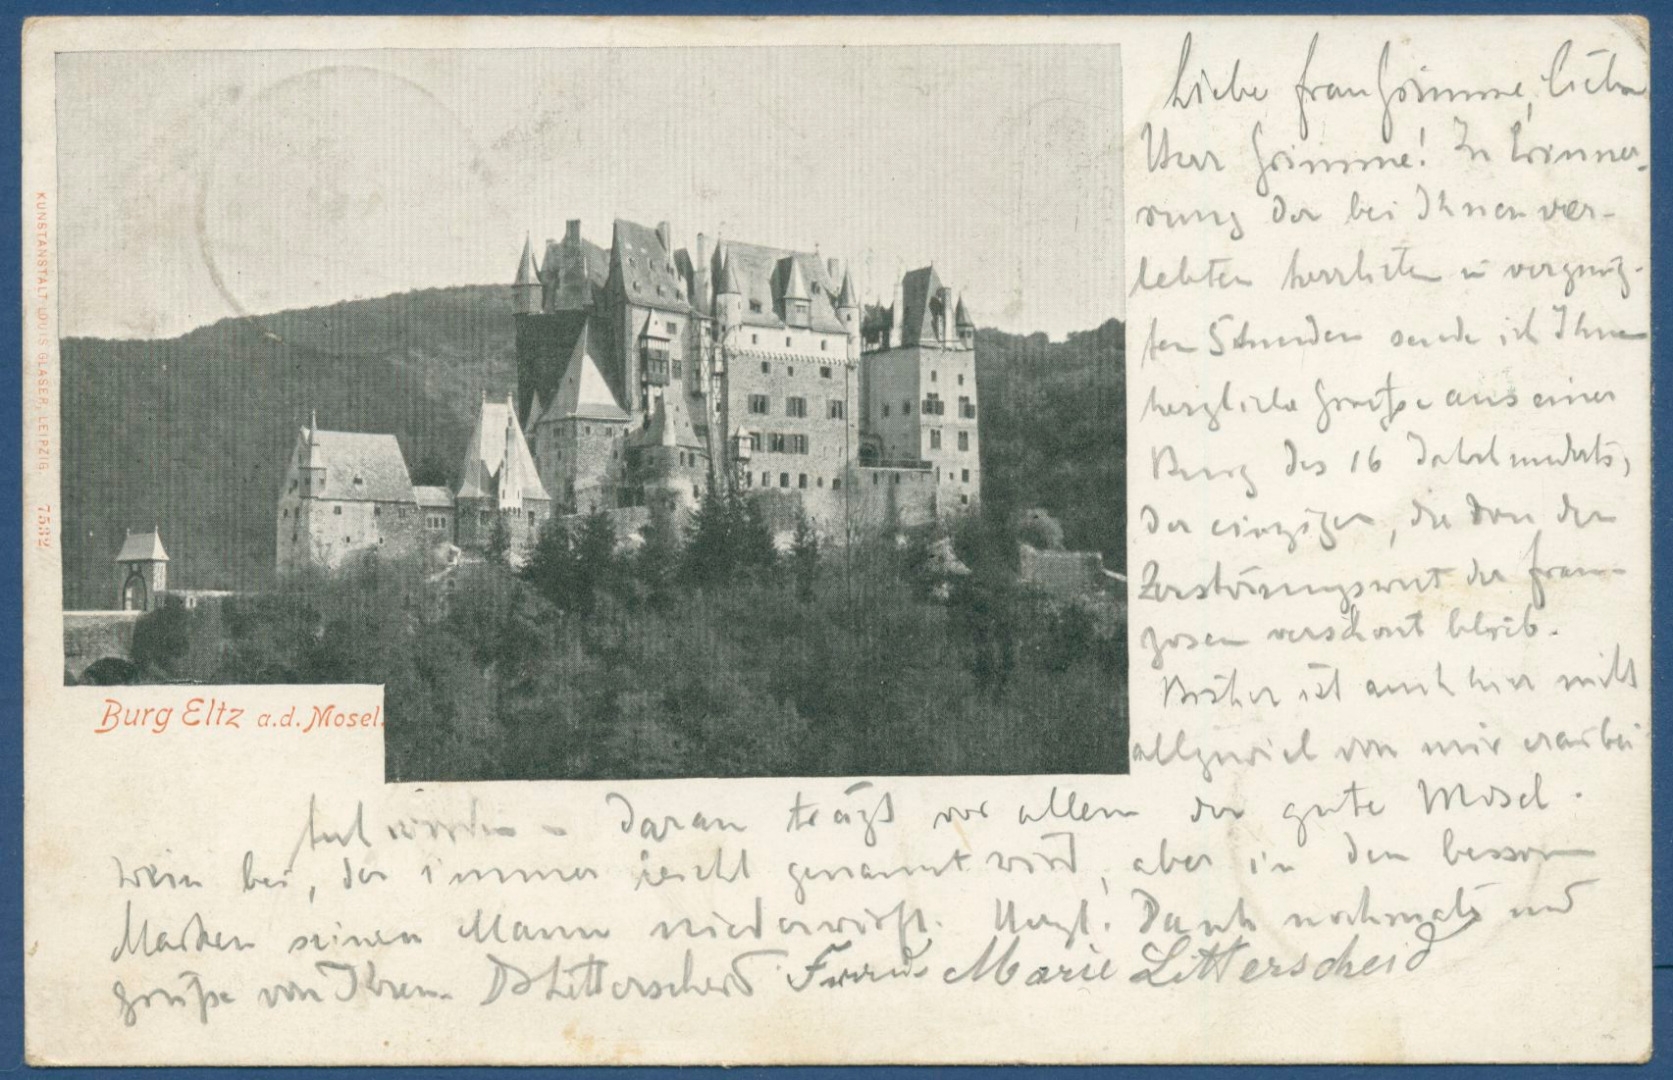 Liebe Frau Grimme, lieber
Herr Grimme! In Erinne-
rung der bei Ihnen ver-
lebten herrlichen u vergnüg-
ten Stunden sende ich Ihnen
herzliche Grüße aus einer
Burg des 16 Jahrhunderts,
der einzigen, die von der
Zerstörungswut der Fran-
zosen verschont blieb.
Bisher ist auch hier nicht
allzuviel von mir erarbei
tet worden - Daran trägt vor allem der gute Mosel-
wein bei, der immer leicht genannt wird, aber in den besseren
Marken seinen Mann niederwirft. Herzl. Dank nochmals und
Grüße von Ihrem Litterscheid Marie Litterscheid
Burg Eltz a.d. Mosel.
KUNSTANSTALT LOUIS GLASER, LEIPZIG. 7532